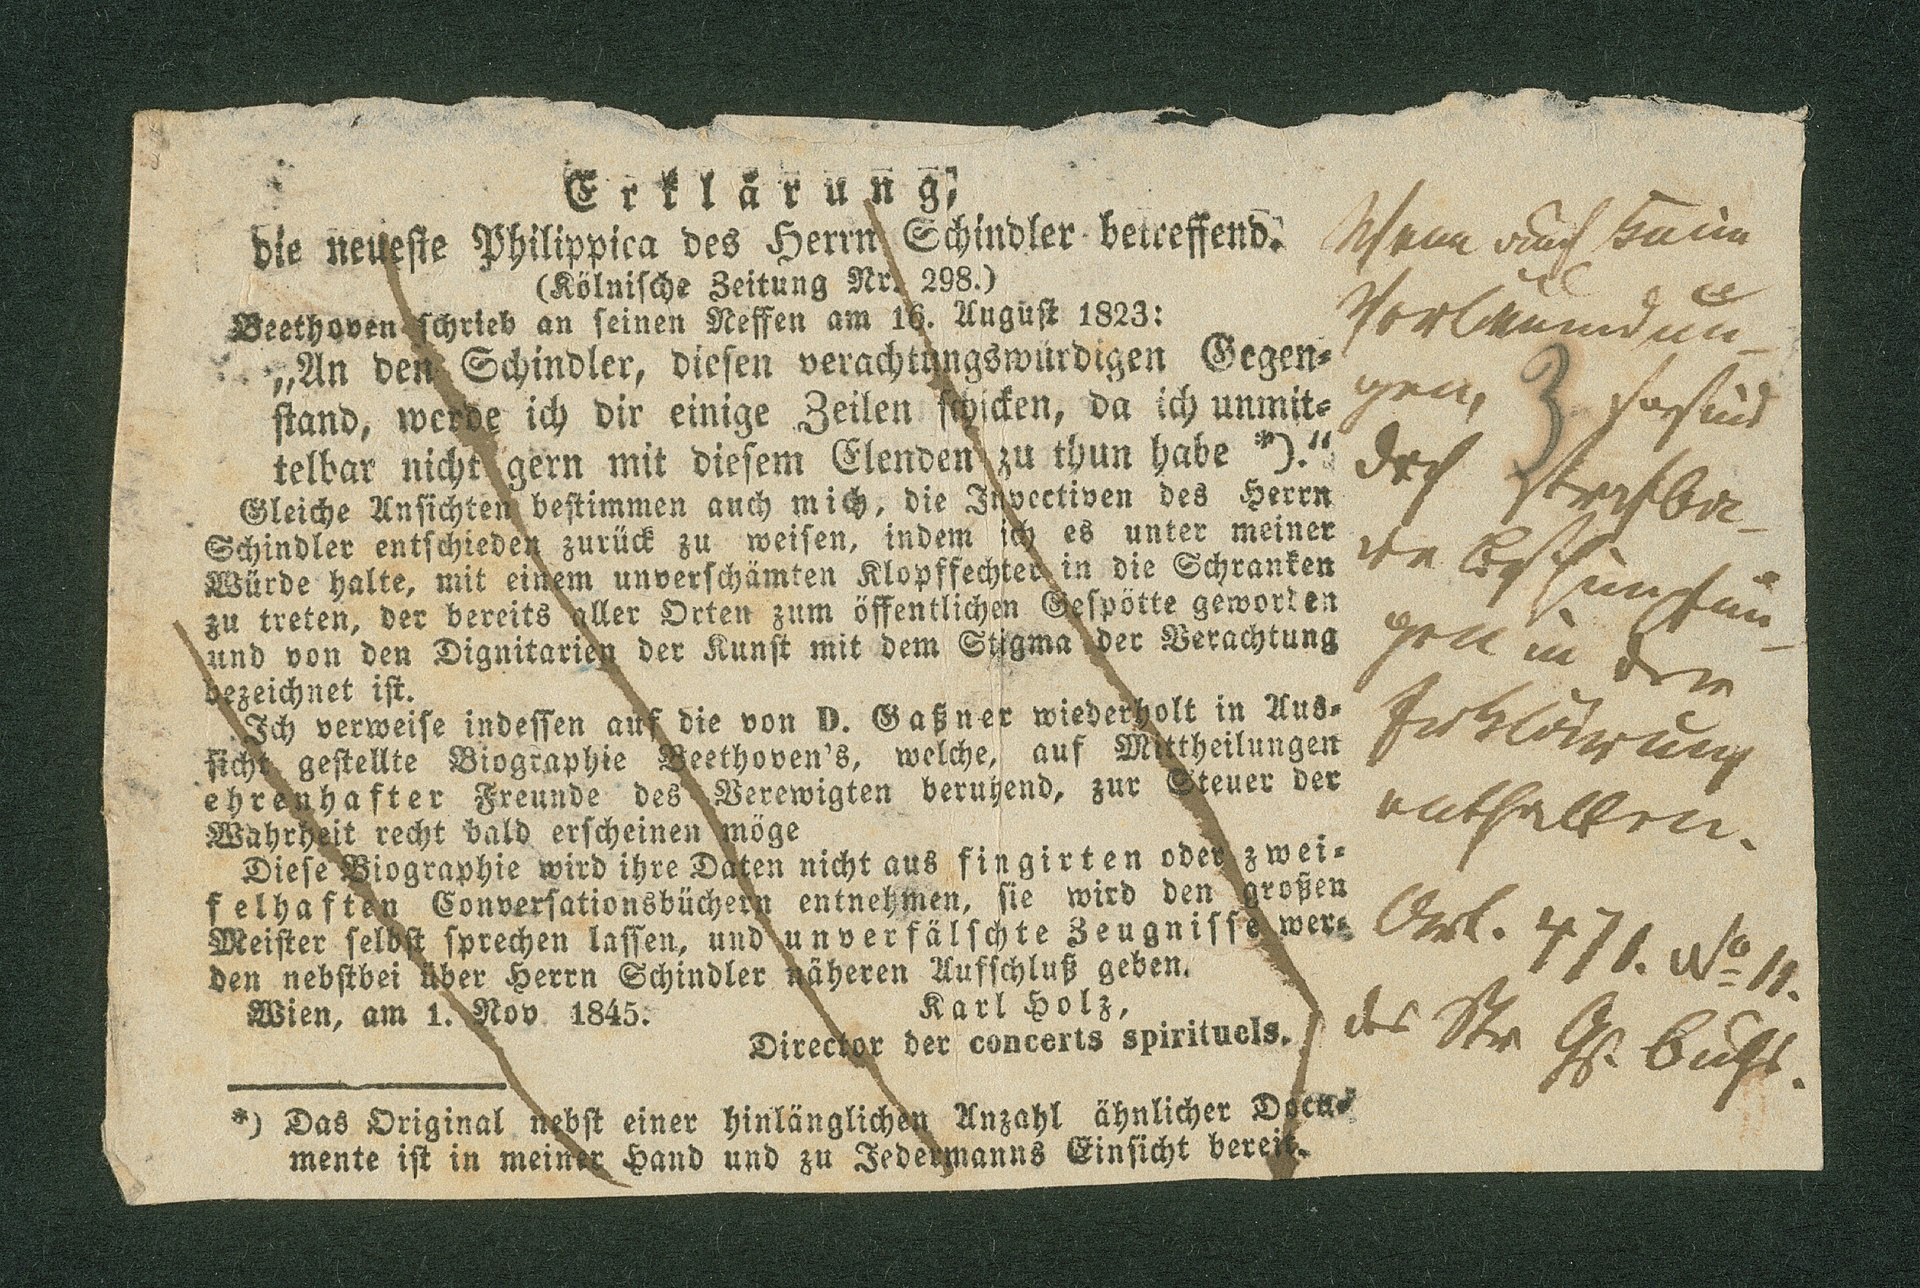 Erklärung,
die neueste Philippica des Herrn Schindler betreffend.
(Kölnische Zeitung Nr. 298.)
Beethoven schrieb an seinen Neffen am 16. August 1823:
„An den Schindler, diesen verachtungswürdigen Gegen-
stand, werde ich dir einige Zeilen schicken, da ich unmit-
telbar nicht gern mit diesem Elenden zu thun habe *).“
Gleiche Ansichten bestimmen auch mich, die Invectiven des Herrn
Schindler entschieden zurück zu weisen, indem ich es unter meiner
Würde halte, mit einem unverschämten Klopffechter in die Schranken
zu treten, der bereits aller Orten zum öffentlichen Gespötte geworden
und von den Dignitarien der Kunst mit dem Stigma der Verachtung
bezeichnet ist.
Ich verweise indessen auf die von D. Gaßner wiederholt in Aus-
sicht gestellte Biographie Beethoven's, welche, auf Mittheilungen
ehrenhafter Freunde des Verewigten beruhend, zur Steuer der
Wahrheit recht bald erscheinen möge
Diese Biographie wird ihre Daten nicht aus fingirten oder zwei-
felhaften Conversationsbüchern entnehmen, sie wird den großen
Meister selbst sprechen lassen, und unverfälschte Zeugnisse wer-
den nebstbei über Herrn Schindler näheren Aufschluß geben.
Wien, am 1. Nov 1845.
Karl Holz,
Director der concerts spirituels.
*) Das Original nebst einer hinlänglichen Anzahl ähnlicher Docu-
mente ist in meiner Hand und zu Jedermanns Einsicht bereit.
Wenn auch kaum
Verläumdun-
gen, 3 so sind
doch strafba-
re Beschimpfun-
gen in der
Erklärung
enthalten.
Art. 471. No 11.
des Str Gs. buchs.